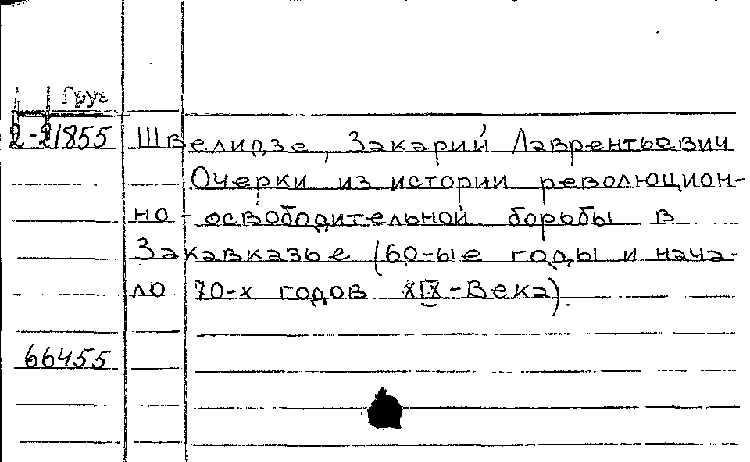 Груз
2-21855 Швелидзе, Закарий Лаврентьевич
Очерки из истории революцион-
но-освободительной борьбы в
Закавказье (60-ые годы и нача-
ло 70-х годов XIX-века).
66455